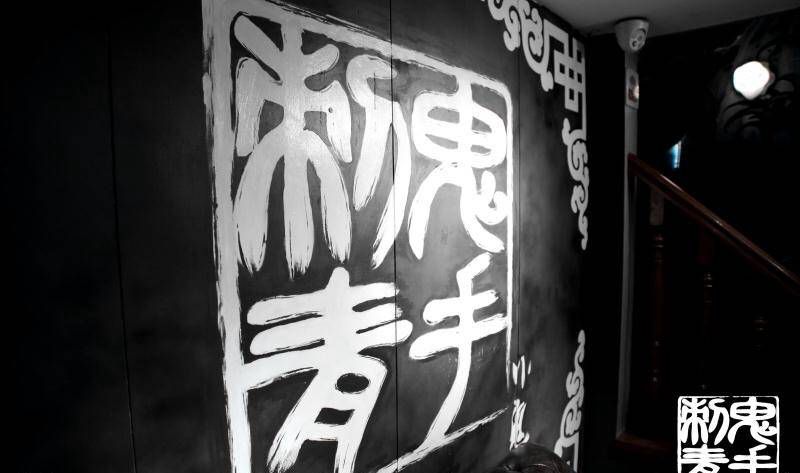 鬼手
刺青
鬼手
刺青